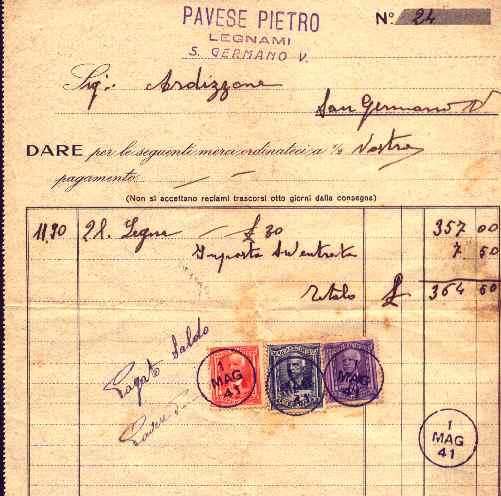 PAVESE PIETRO
LEGNAMI
S. GERMANO V.
N° 24
Sig: Ardizzone
San Germano V
DARE per le seguenti merci ordinateci a ½ Vostra
pagamento:
(Non si accettano reclami trascorsi otto giorni dalla consegna)
11,90 Ql. Legna £ 30 357 00
Imposta Su entrata 7 60
Totale £ 364 60
Pagato Saldo
1 MAG 41
MAG 41
1 MAG 41
1
MAG
41